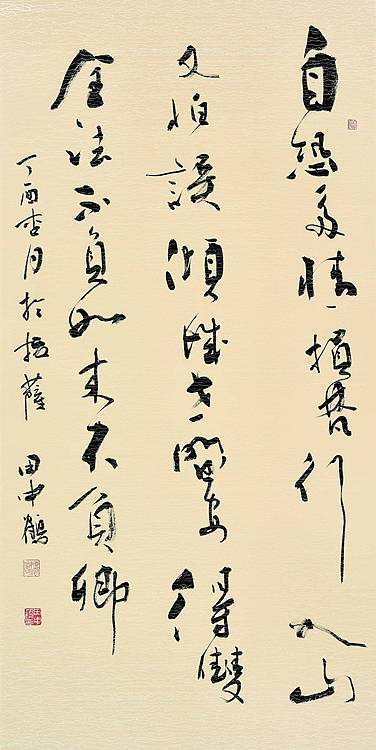 自恐多情損梵行入山
又怕誤傾城世間安得雙
全法不負如來不負卿
丁酉杏月於拉薩 田中鶴